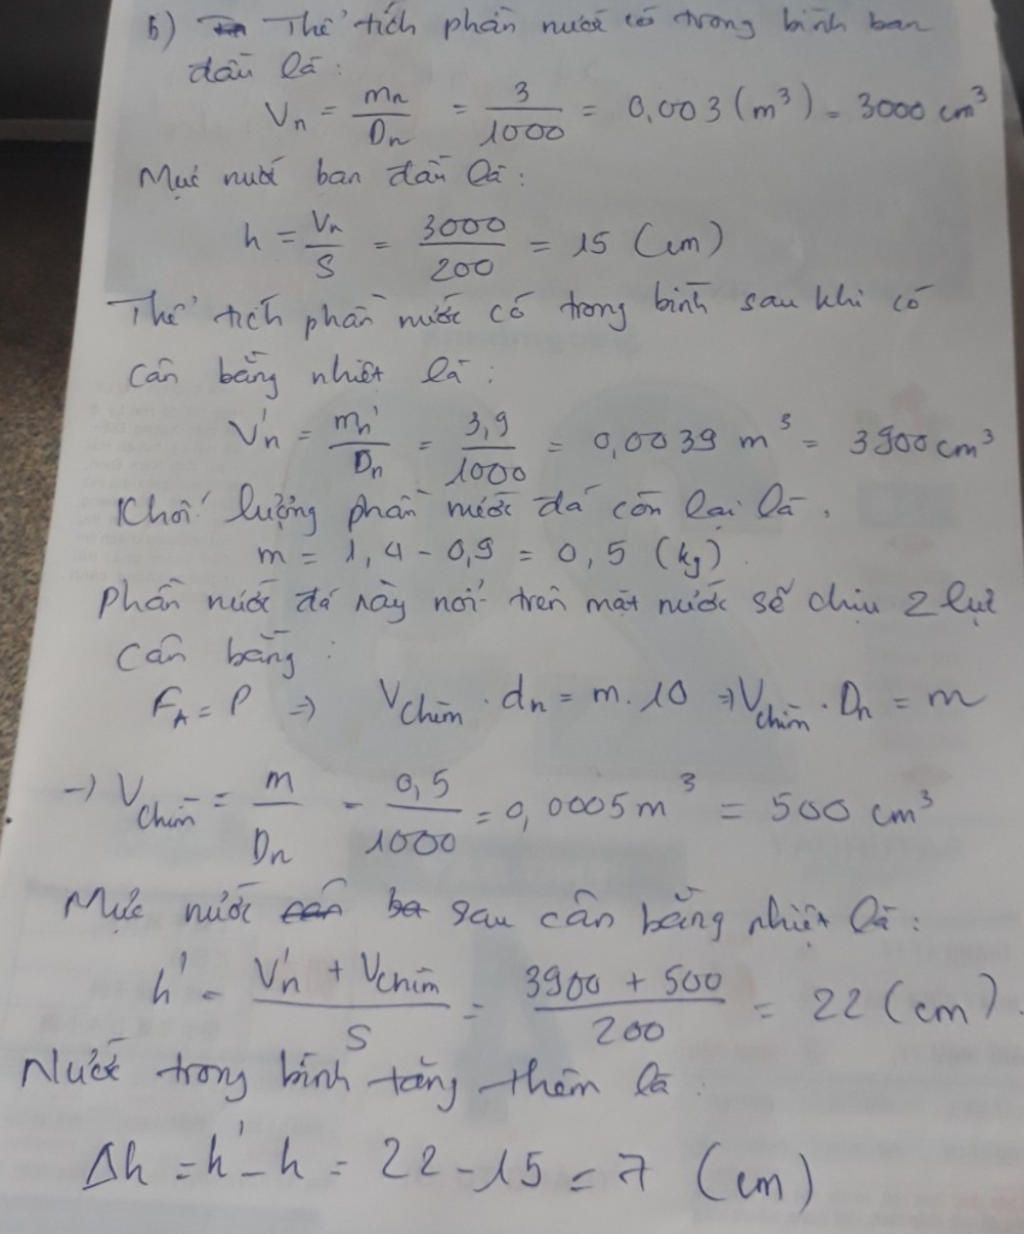 b) Thể tích phần nước có trong bình ban
đầu là:
Vn = mn/Dn = 3/1000 = 0,003 (m³) = 3000 cm³
Mực nước ban đầu là:
h = Vn/S = 3000/200 = 15 (cm)
Thể tích phần nước có trong bình sau khi có
cân bằng nhiệt là:
V'n = mn'/Dn = 3,9/1000 = 0,0039 m³ = 3900 cm³
Khối lượng phần nước đá còn lại là,
m = 1,4 - 0,9 = 0,5 (kg).
Phần nước đá này nổi trên mặt nước sẽ chịu 2 lực
cân bằng:
FA = P => Vchìm . dn = m.10 => Vchìm . Dn = m
-> Vchìm = m/Dn = 0,5/1000 = 0,0005 m³ = 500 cm³
Mực nước sau cân bằng nhiệt là:
h' = (V'n + Vchìm)/S = (3900 + 500)/200 = 22 (cm).
Nước trong bình tăng thêm là:
Δh = h' - h = 22 - 15 = 7 (cm)